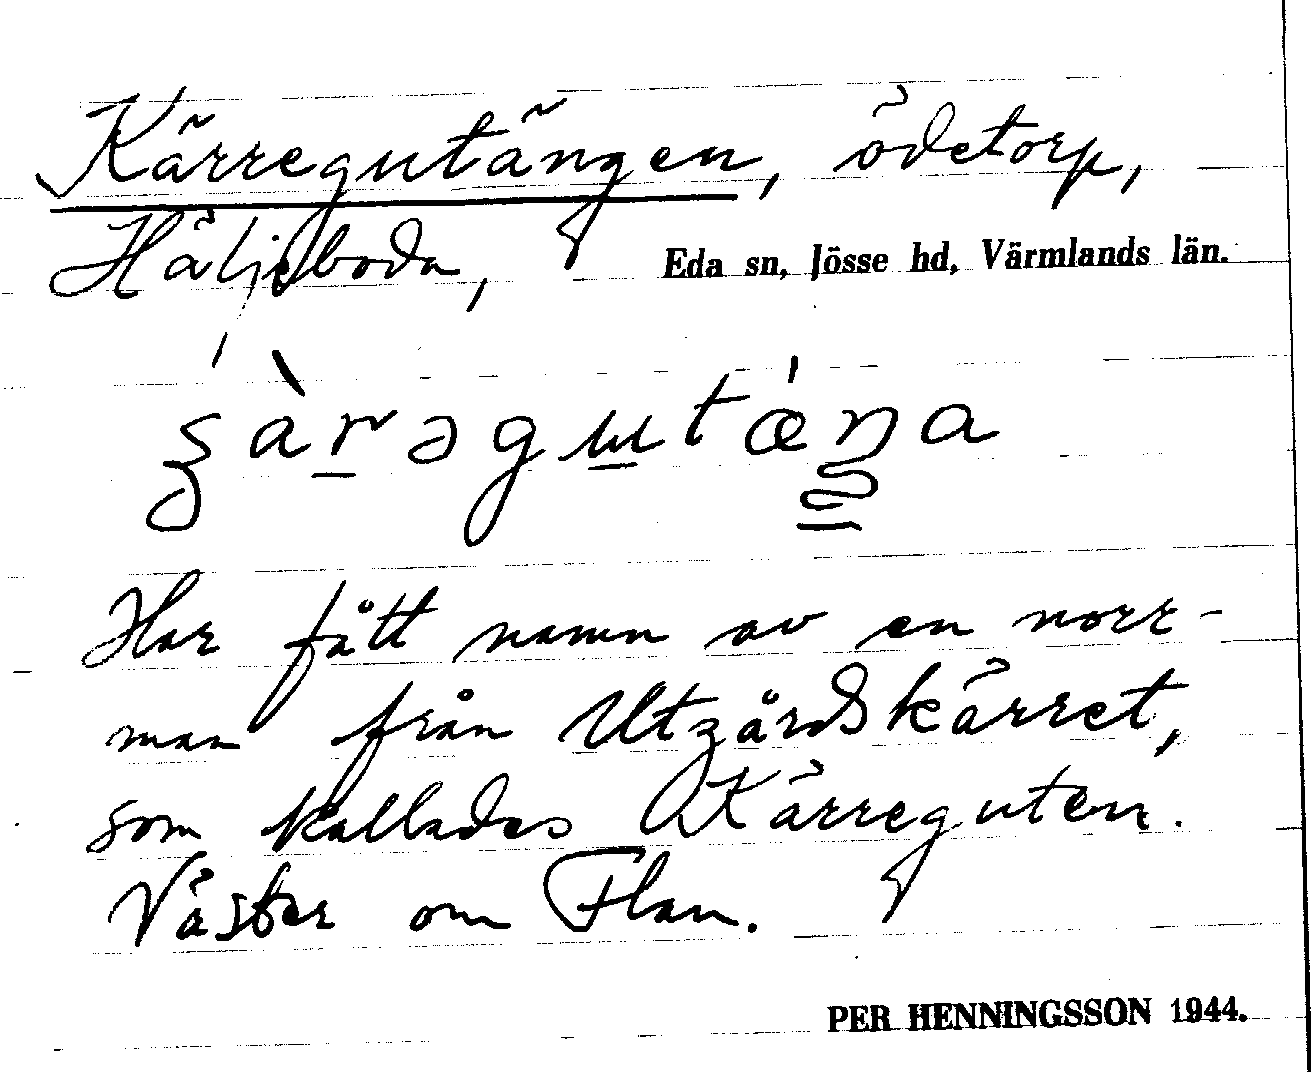 Kärregutängen, ödetorp,
Häljeboda, Eda sn, Jösse hd, Värmlands län.
Har fått namn av en norr-
man från Utgårdskärret,
som kallades Kärreguten.
Väster om Flan.
PER HENNINGSSON 1944.